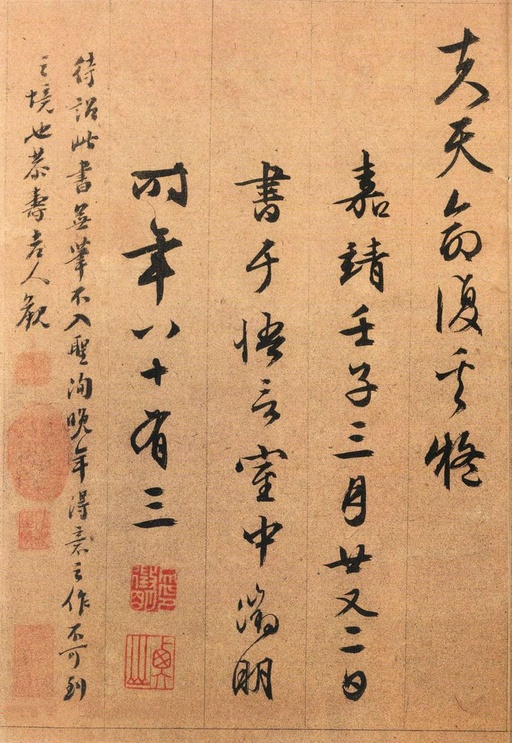 夫天命復奚疑
嘉靖壬子三月廿又二日
書于悟言室中徵明
時年八十有三
待詔此書無筆不入聖洵晚年得意之作不可到
之境也恭壽老人觀